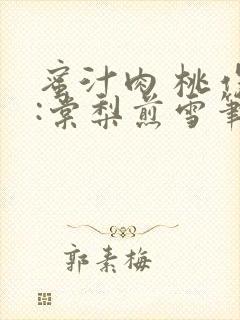 蜜汁肉桃作
:棠梨煎雪筆
郭素梅